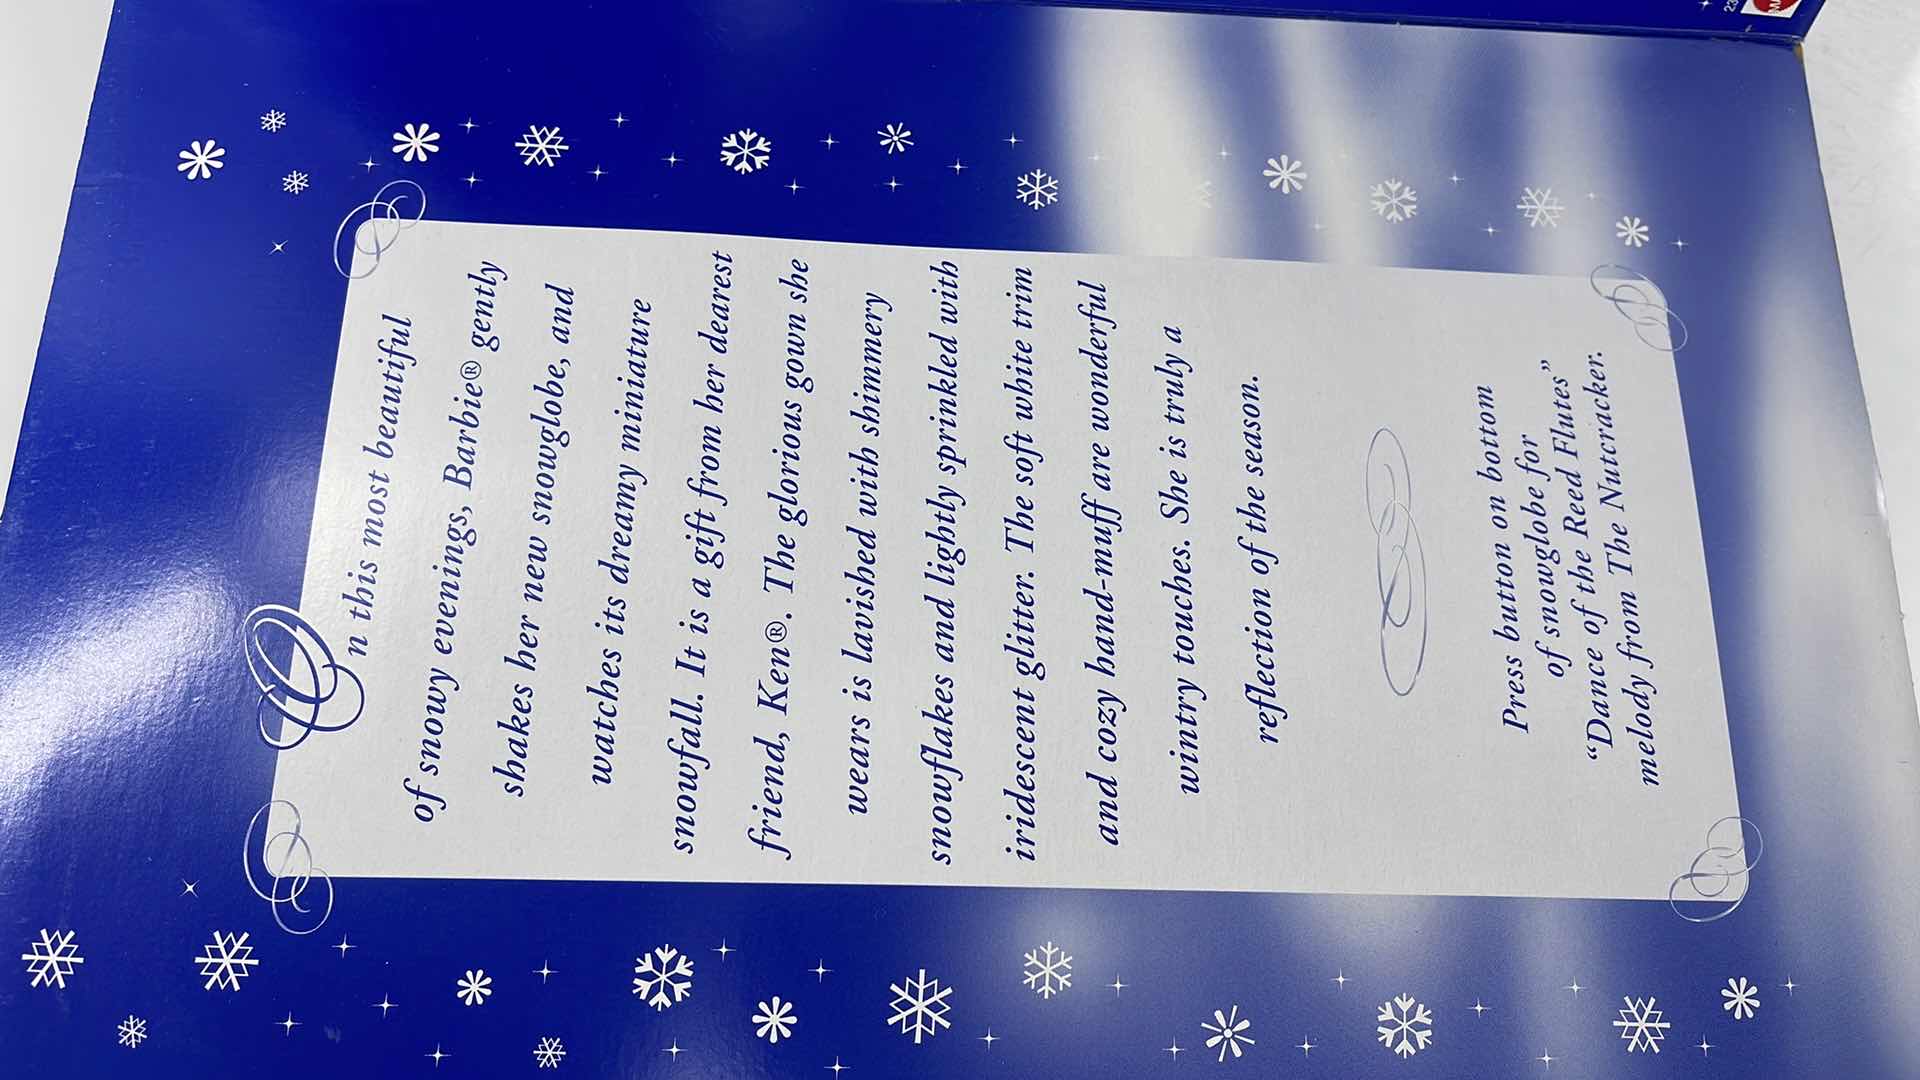 On this most beautiful
of snowy evenings, Barbie® gently
shakes her new snowglobe, and
watches its dreamy miniature
snowfall. It is a gift from her dearest
friend, Ken®. The glorious gown she
wears is lavished with shimmery
snowflakes and lightly sprinkled with
iridescent glitter. The soft white trim
and cozy hand-muff are wonderful
wintry touches. She is truly a
reflection of the season.
Press button on bottom
of snowglobe for
“Dance of the Reed Flutes”
melody from The Nutcracker.